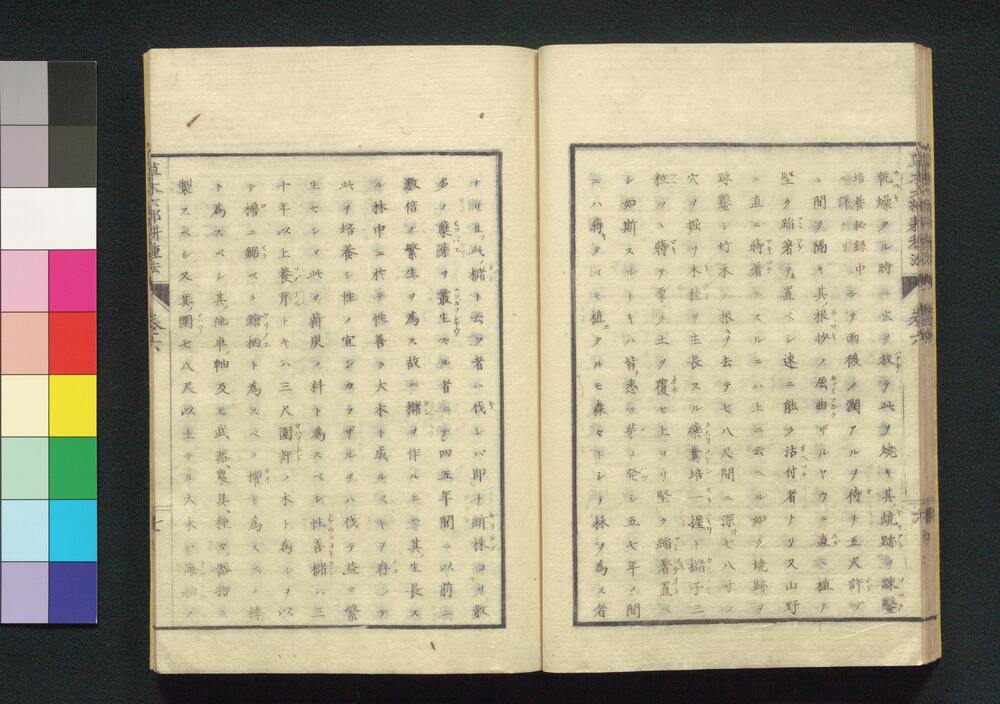 乾燥タル時ニ火ヲ放テ此ヲ焼キ其焼跡ヲ疎鑿
培養秘録中ニ詳ナリシテ雨後ノ潤アルヲ待チ五尺許ヅ
ヽ間ヲ隔キ其根抄ノ屈曲ザルヤウニ直ニ植テ
堅ク蹈著テ置ベシ速ニ能ク活付者ナリ又山野
ニ直ニ蒔着ニスルニハ上ニ云ヘル如ク焼跡ヲ
疎鑿シ竹木ノ根ヲ去テ七八尺間ニ深七八寸ノ
穴ヲ掘リ木枝ヲ生長スル藥糞培一握ト櫧子三
粒ヅヽ蒔テ厚ク土ヲ覆ヒ上ヨリ堅ク蹈著置ベ
シ如斯スルトキハ皆悉ク芽ヲ発シ五七年ノ間
ニハ蒔タルモ植エタルモ森々トシテ林ヲ為ス者
ナリ且此ノ櫧ト云フ者ハ伐レバ即ト断株ヨリ数
多ノ蘖芽ヲ叢生スル者ニテ四五年間ニ以前ニ
數倍ノ繁生ヲ為ス故ニ櫧ヲ作ルニハ其生長ス
ル林中ニ於テ性善ク大木ト成ルベキヲ存シテ
此ヲ培養シ性ノ宜シカラザルヲハ伐テ益々繁
生セシメ此ヲ薪炭ノ料ト為スベシ性善櫧ハ三
十年以上養育トキハ三尺圍許ノ木ト為ルヲ以
テ櫓ニ鋸ベク鎗柄ト為スベク櫂ト為スベク棒
ト為スベシ其他車軸及ヒ武器農具種々ノ器物ニ
製スベシ又其圍七八尺以上ナル大木ハ海舶ノ
草木六部耕種法
巻六
七